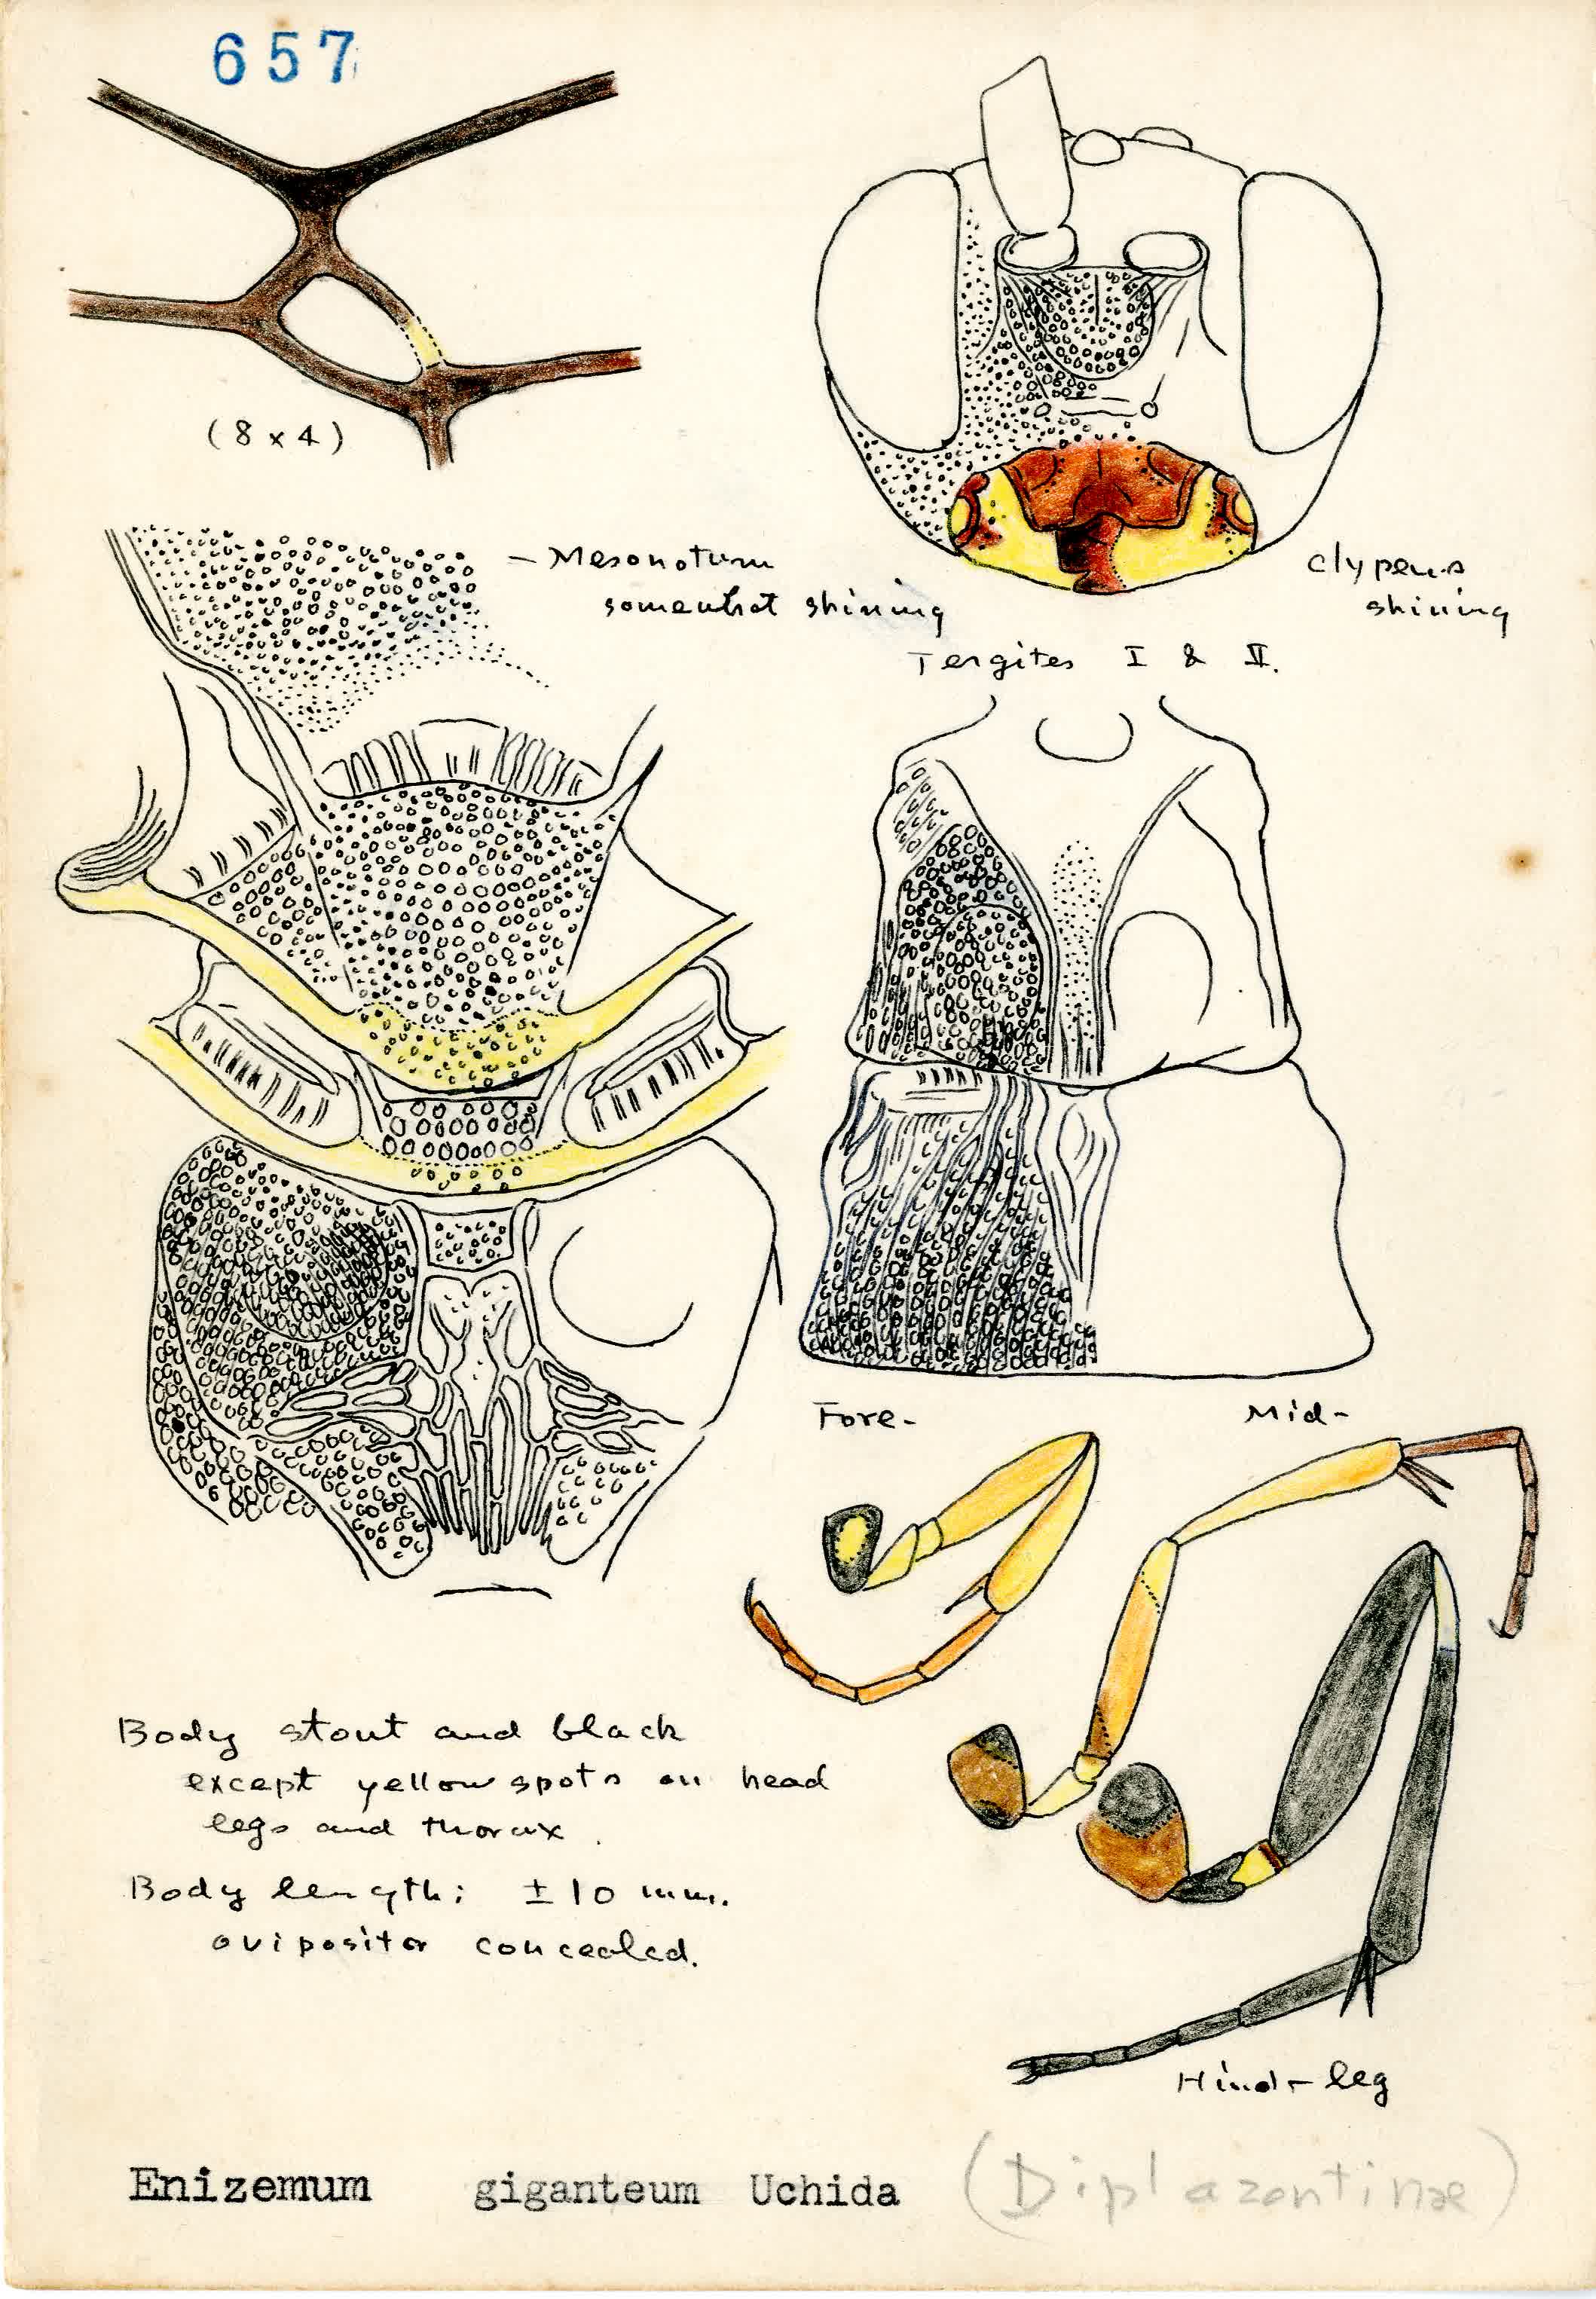 657
(8 x 4)
— Mesonotum
somewhat shining
clypeus
shining
Tergites I & II.
Fore-
Mid-
Body stout and black
except yellow spots on head
legs and thorax.
Body length; ±10 mm.
ovipositor concealed.
Hind-leg
Enizemum giganteum Uchida (Diplazontinae)